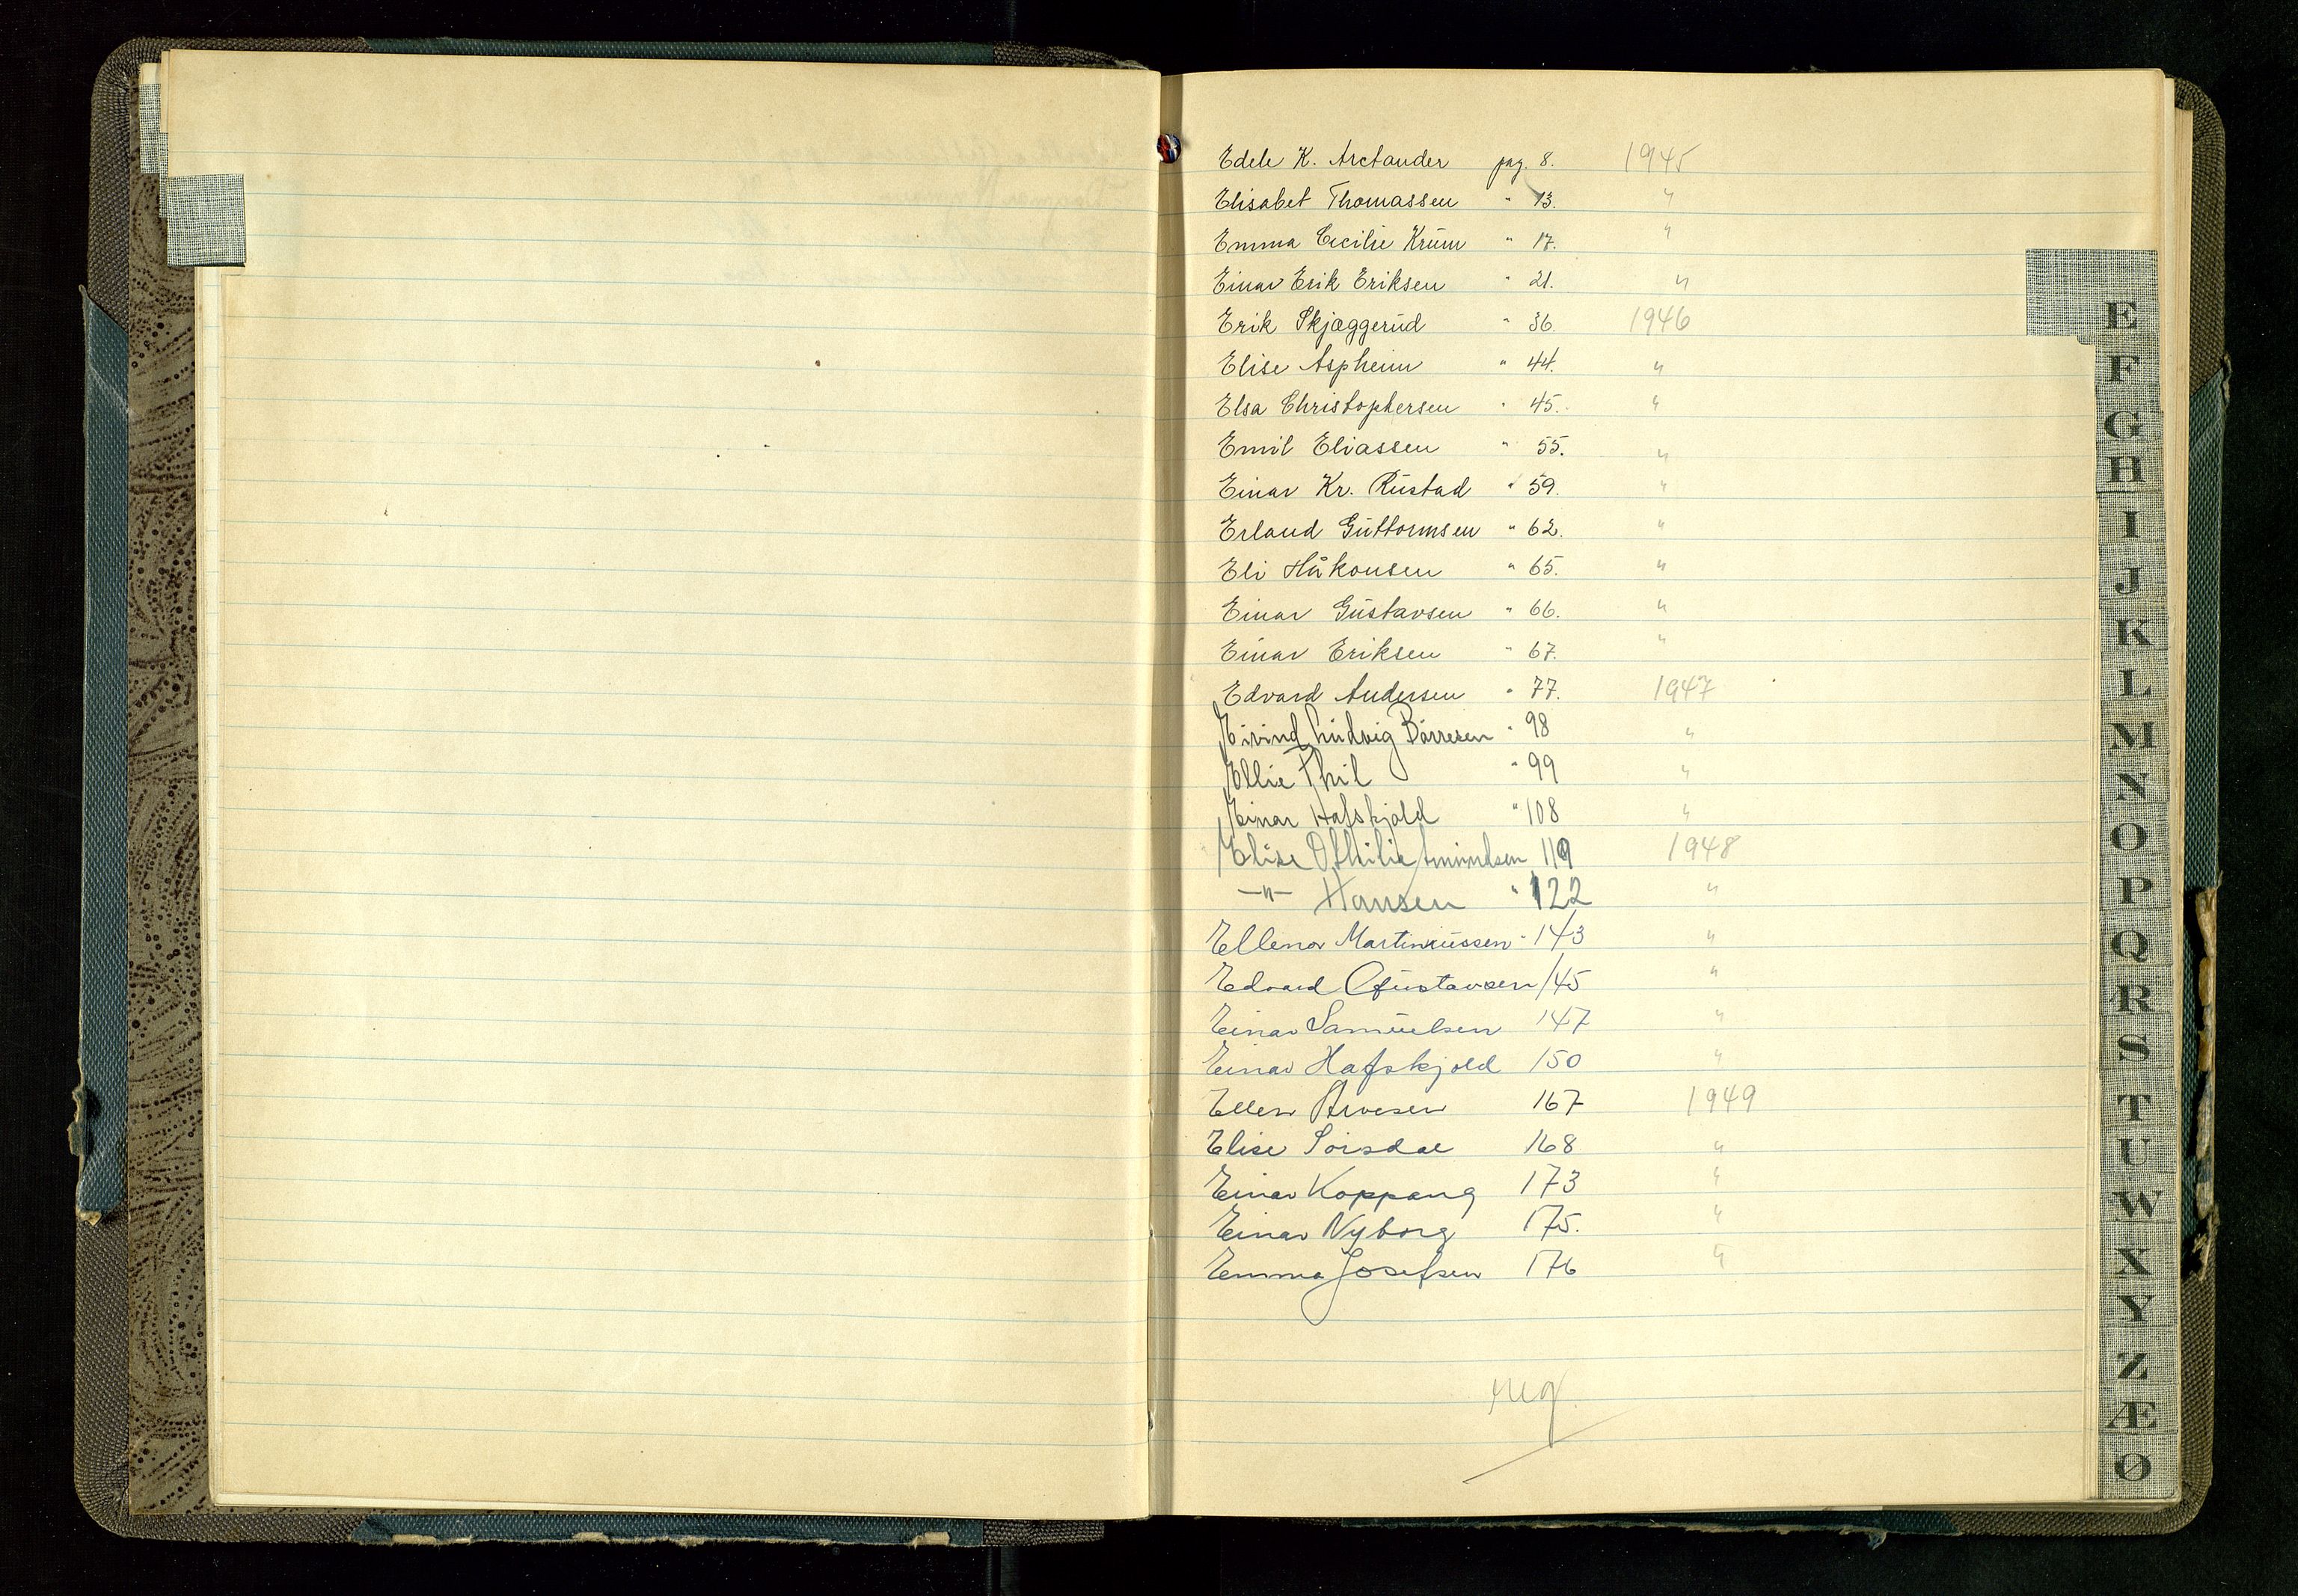 Edele K. Arctander pag. 8. 1945
Elisabet Thomassen " 13. "
Emma Cecilie Krüm " 17. "
Einar Erik Eriksen " 21. "
Erik Skjæggerüd " 36. 1946
Elise Aspheim " 44. "
Elsa Christophersen " 45. "
Emil Eliassen " 55. "
Einar Kr. Rüstad " 59. "
Erland Güttormsen " 62. "
Eli Håkonsen " 65. "
Einar Güstavsen " 66. "
Einar Eriksen " 67. "
Edvard Andersen " 77. 1947
Eivind Lüdvig Börresen " 98 "
Ellie Thil " 99 "
Einar Hafskjold " 108 "
Elise Othilie Amündsen 119 1948
—"— Hansen " 122 "
Ellenor Martiniüssen " 143 "
Edvard Güstavsen 145 "
Einar Samüelsen 147 "
Einar Hafskjold 150 "
Ellen Arvesen 167 1949
Elise Sörsdal 168 "
Einar Koppang 173 "
Einar Nyborg 175. "
Emma Josefsen 176 "
E
F
G
H
I
J
K
L
M
N
O
P
Q
R
S
T
U
W
X
Y
Z
Æ
Ø